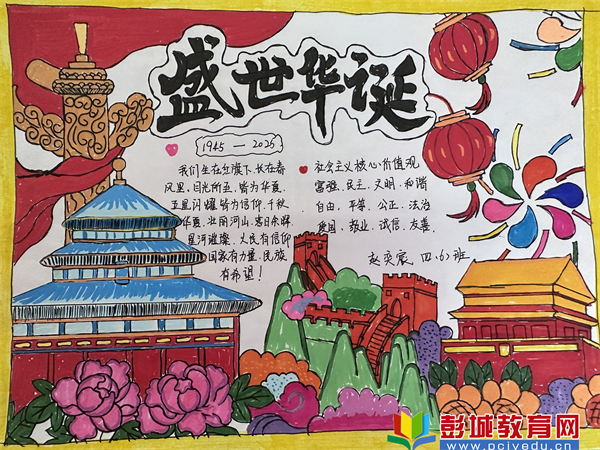 盛世华诞
1945—2025
我们生在红旗下,长在春
风里,目光所至,皆为华夏,
五星闪耀,皆为信仰,千秋
华夏,壮阔河山,
星河璀璨,人民有信仰
国家有力量,民族
有希望!
社会主义核心价值观
富强、民主、文明、和谐
自由、平等、公正、法治
爱国、敬业、诚信、友善、
赵奕宸 四(6)班
彭城教育网
www.pcjyedu.cn